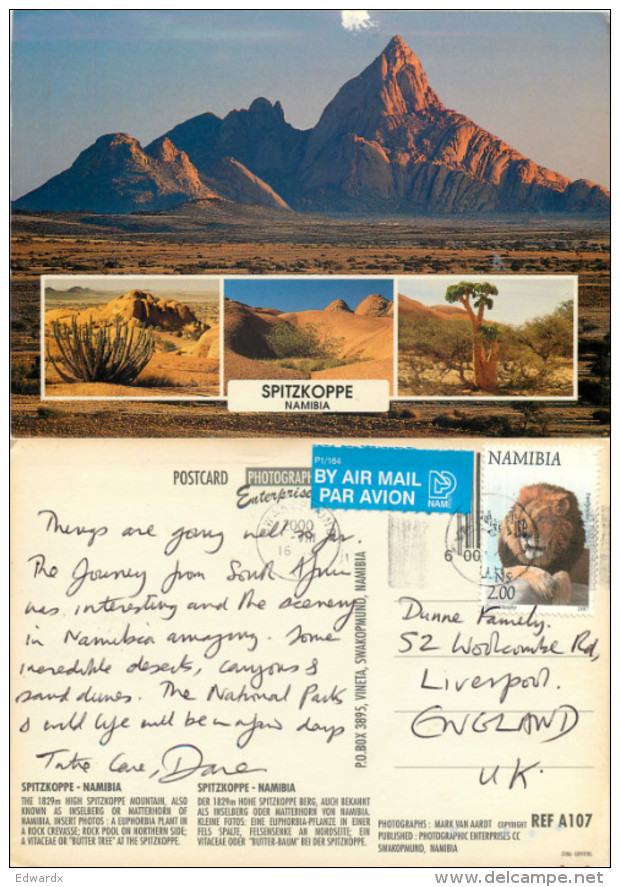 SPITZKOPPE
NAMIBIA
POSTCARD
PHOTOGRAPH
Enterprise
P1/164
BY AIR MAIL
PAR AVION
NAM
NAMIBIA
N$
2.00
2000
16
6 00
Things are going well so far.
The Journey from South Africa
was interesting and the scenery
in Namibia amazing. Some
incredible deserts, canyons &
sand dunes. The National Parks
& wild life will be in a few days
Take Care, Dave
P.O.BOX 3895, VINETA, SWAKOPMUND, NAMIBIA
Dunne Family.
52 Woolcombe Rd,
Liverpool.
ENGLAND
U.K.
SPITZKOPPE - NAMIBIA
THE 1829m HIGH SPITZKOPPE MOUNTAIN, ALSO
KNOWN AS INSELBERG OR MATTERHORN OF
NAMIBIA. INSERT PHOTOS : A EUPHORBIA PLANT IN
A ROCK CREVASSE; ROCK POOL ON NORTHERN SIDE;
A VITACEAE OR "BUTTER TREE" AT THE SPITZKOPPE.
SPITZKOPPE - NAMIBIA
DER 1829m HOHE SPITZKOPPE BERG, AUCH BEKANNT
ALS INSELBERG ODER MATTERHORN VON NAMIBIA.
KLEINE FOTOS: EINE EUPHORBIA-PFLANZE IN EINER
FELS SPALTE, FELSENSENKE AN NORDSEITE; EIN
VITACEAE ODER "BUTTER-BAUM" BEI DER SPITZKOPPE.
PHOTOGRAPHS : MARK VAN AARDT COPYRIGHT
PUBLISHED : PHOTOGRAPHIC ENTERPRISES CC
SWAKOPMUND, NAMIBIA
REF A107
Edwardx
www.delcampe.net